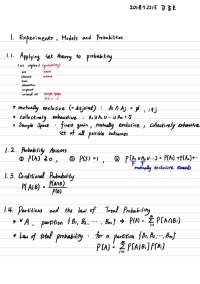 1. Experiments, Models and Probabilities
1.1. Applying Set theory to probability
* mutually exclusive (= disjoint) : Ai ∩ Aj = ∅, i≠j
* collectively exhaustive : A₁ ∪ A₂ ∪ ⋯ ∪ An = S
* Sample Space : finest grain, mutually exclusive, collectively exhaustive
set of all possible outcomes
1.2. Probability Axioms
① P[A] ≥ 0, ② P[S] = 1, ③ P[A₁ ∪ A₂ ∪ ⋯] = P[A₁] + P[A₂] + ⋯
mutually exclusive events
1.3. Conditional Probability
P[A|B] = P[A∩B] / P[B]
1.4. Partitions and the Law of Total Probability
* ∀A, partition {B₁, B₂, ⋯, Bm} → P[A] = Σ P[A∩Bi]
* Law of total probability : for a partition {B₁, B₂, ⋯, Bm}
P[A] = Σ P[A|Bi] P[Bi]